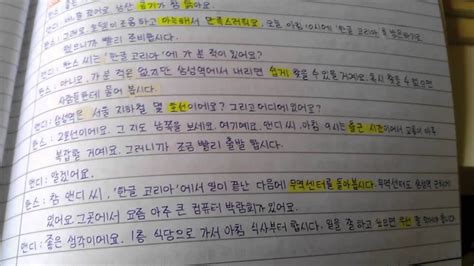 앤디: 네, 좋았어요. 방안 공기가 참 맑고
한스: 그래요. 호텔이 조용하고 아늑해서 만족스러워요. 오늘 아침 10시에 '한글 코리아'
빨리 준비합시다.
앤디: 한스 씨는 '한글 코리아'에 가 본 적이 있어요?
한스: 아니요. 가 본 적은 없지만 삼성역에서 내리면 쉽게 찾을 수 있을 거예요. 혹시 찾을 수 없으면
사람들한테 물어 봅시다.
앤디: 삼성역은 서울 지하철 몇 호선이에요? 그리고 어디에 있어요?
한스: 2호선이에요. 그 지도 남쪽을 보세요. 여기예요. 앤디 씨, 아침 9시는 출근 시간이에서 교통이 아주
복잡할 거예요. 그러니까 조금 빨리 출발 합시다.
앤디: 알겠어요.
한스: 참 앤디 씨, '한글 코리아'에서 일이 끝난 다음에 무역센터를 돌아봅시다. 무역센터도 삼성역 근처에
있어요. 그곳에서 요즘 아주 큰 컴퓨터 박람회가 있어요.
앤디: 좋은 생각이에요. 1층 식당으로 가서 아침 식사부터 합시다. 일을 잘 하고 싶으면 우선 잘 먹어야 합니다